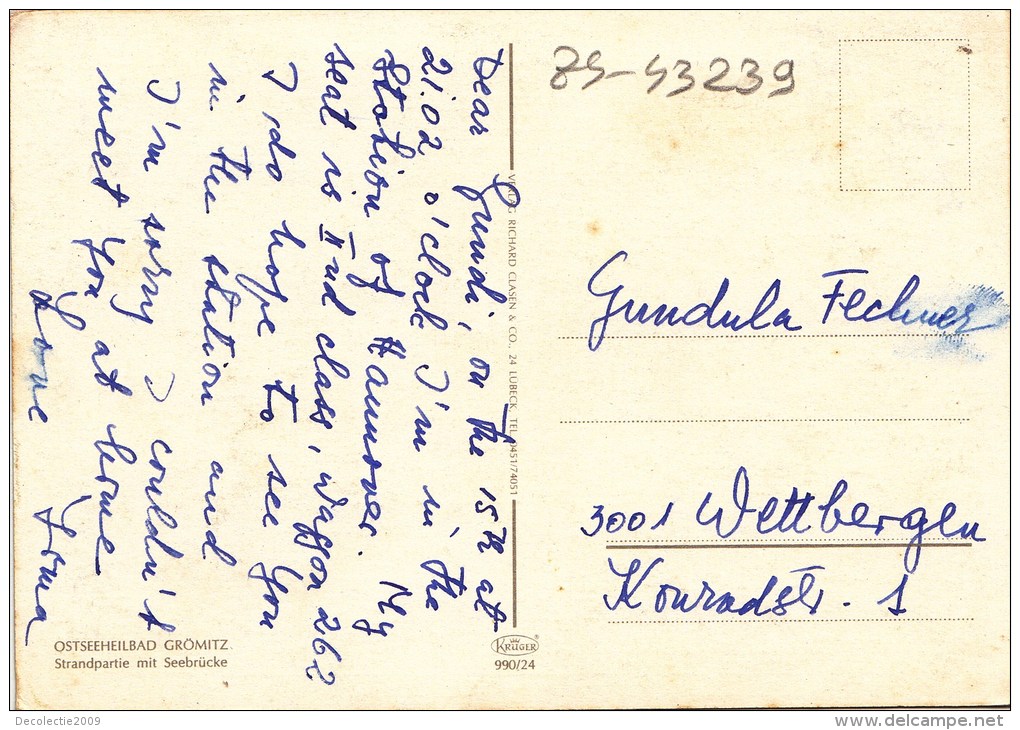 Dear Gundi, on the 15th at
21.02 o'clock I'm in the
Station of Hannover. My
seat is IInd class, Waggon 262
I do hope to see You
in the station and
I'm sorry I couldn't
meet You at home
Love Irma
VERLAG RICHARD CLASEN & CO., 24 LÜBECK, TEL. 0451/74051
Gundula Fechner
3001 Wettbergen
Konradstr. 1
OSTSEEHEILBAD GRÖMITZ
Strandpartie mit Seebrücke
KRÜGER
990/24
Decolectie2009
www.delcampe.net